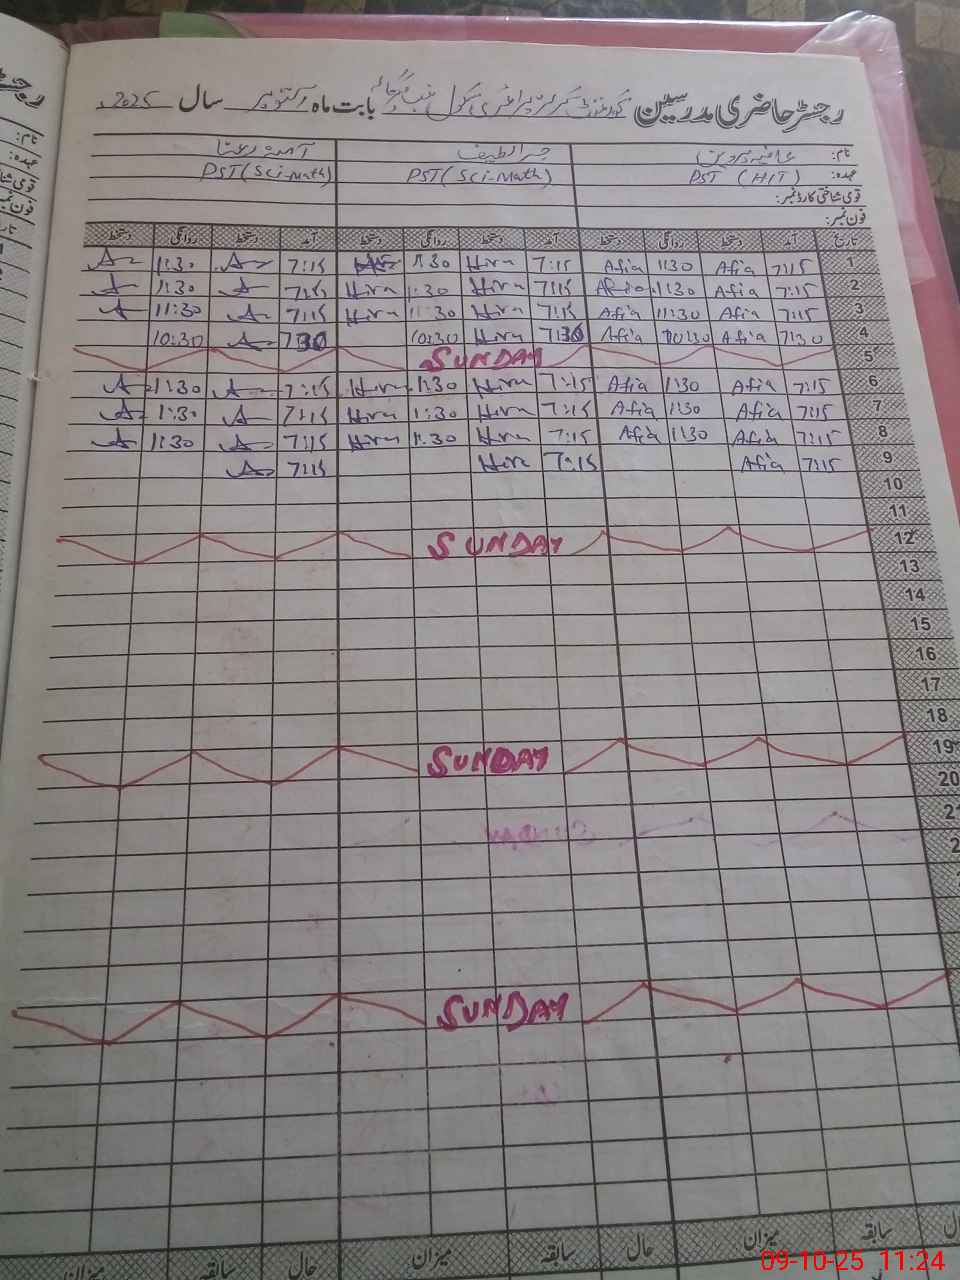 رجسٹر حاضری مدرسین گورنمنٹ گرلز پرائمری سکول بابت ماہ اکتوبر سال 2025
نام: عافیہ پروین حرا لطیف آمنہ
عہدہ: PST (HIT) PST (Sci-Math) PST (Sci-Math)
قومی شناختی کارڈ نمبر:
فون نمبر:
تاریخ آمد دستخط روانگی دستخط آمد دستخط روانگی دستخط آمد دستخط روانگی دستخط
1 7:15 Afia 1:30 Afia 7:15 Hira 1:30 7:15 A 1:30 A
2 7:15 Afia 1:30 Afia 7:15 Hira 1:30 Hira 7:15 A 1:30 A
3 7:15 Afia 11:30 Afia 7:15 Hira 11:30 Hira 7:15 A 11:30 A
4 7:30 Afia 10:30 Afia 7:30 Hira 10:30 7:30 A 10:30
5 SUNDAY
6 7:15 Afia 1:30 Afia 7:15 Hira 1:30 Hira 7:15 A 1:30 A
7 7:15 Afia 1:30 Afia 7:15 Hira 1:30 Hira 7:15 A 1:30 A
8 7:15 Afia 1:30 Afia 7:15 Hira 1:30 Hira 7:15 A 1:30 A
9 7:15 Afia 7:15 Hira 7:15 A
10
11
12 SUNDAY
13
14
15
16
17
18
19 SUNDAY
20
SUNDAY
میزان سابقہ حال میزان سابقہ حال میزان سابقہ
09-10-25 11:24